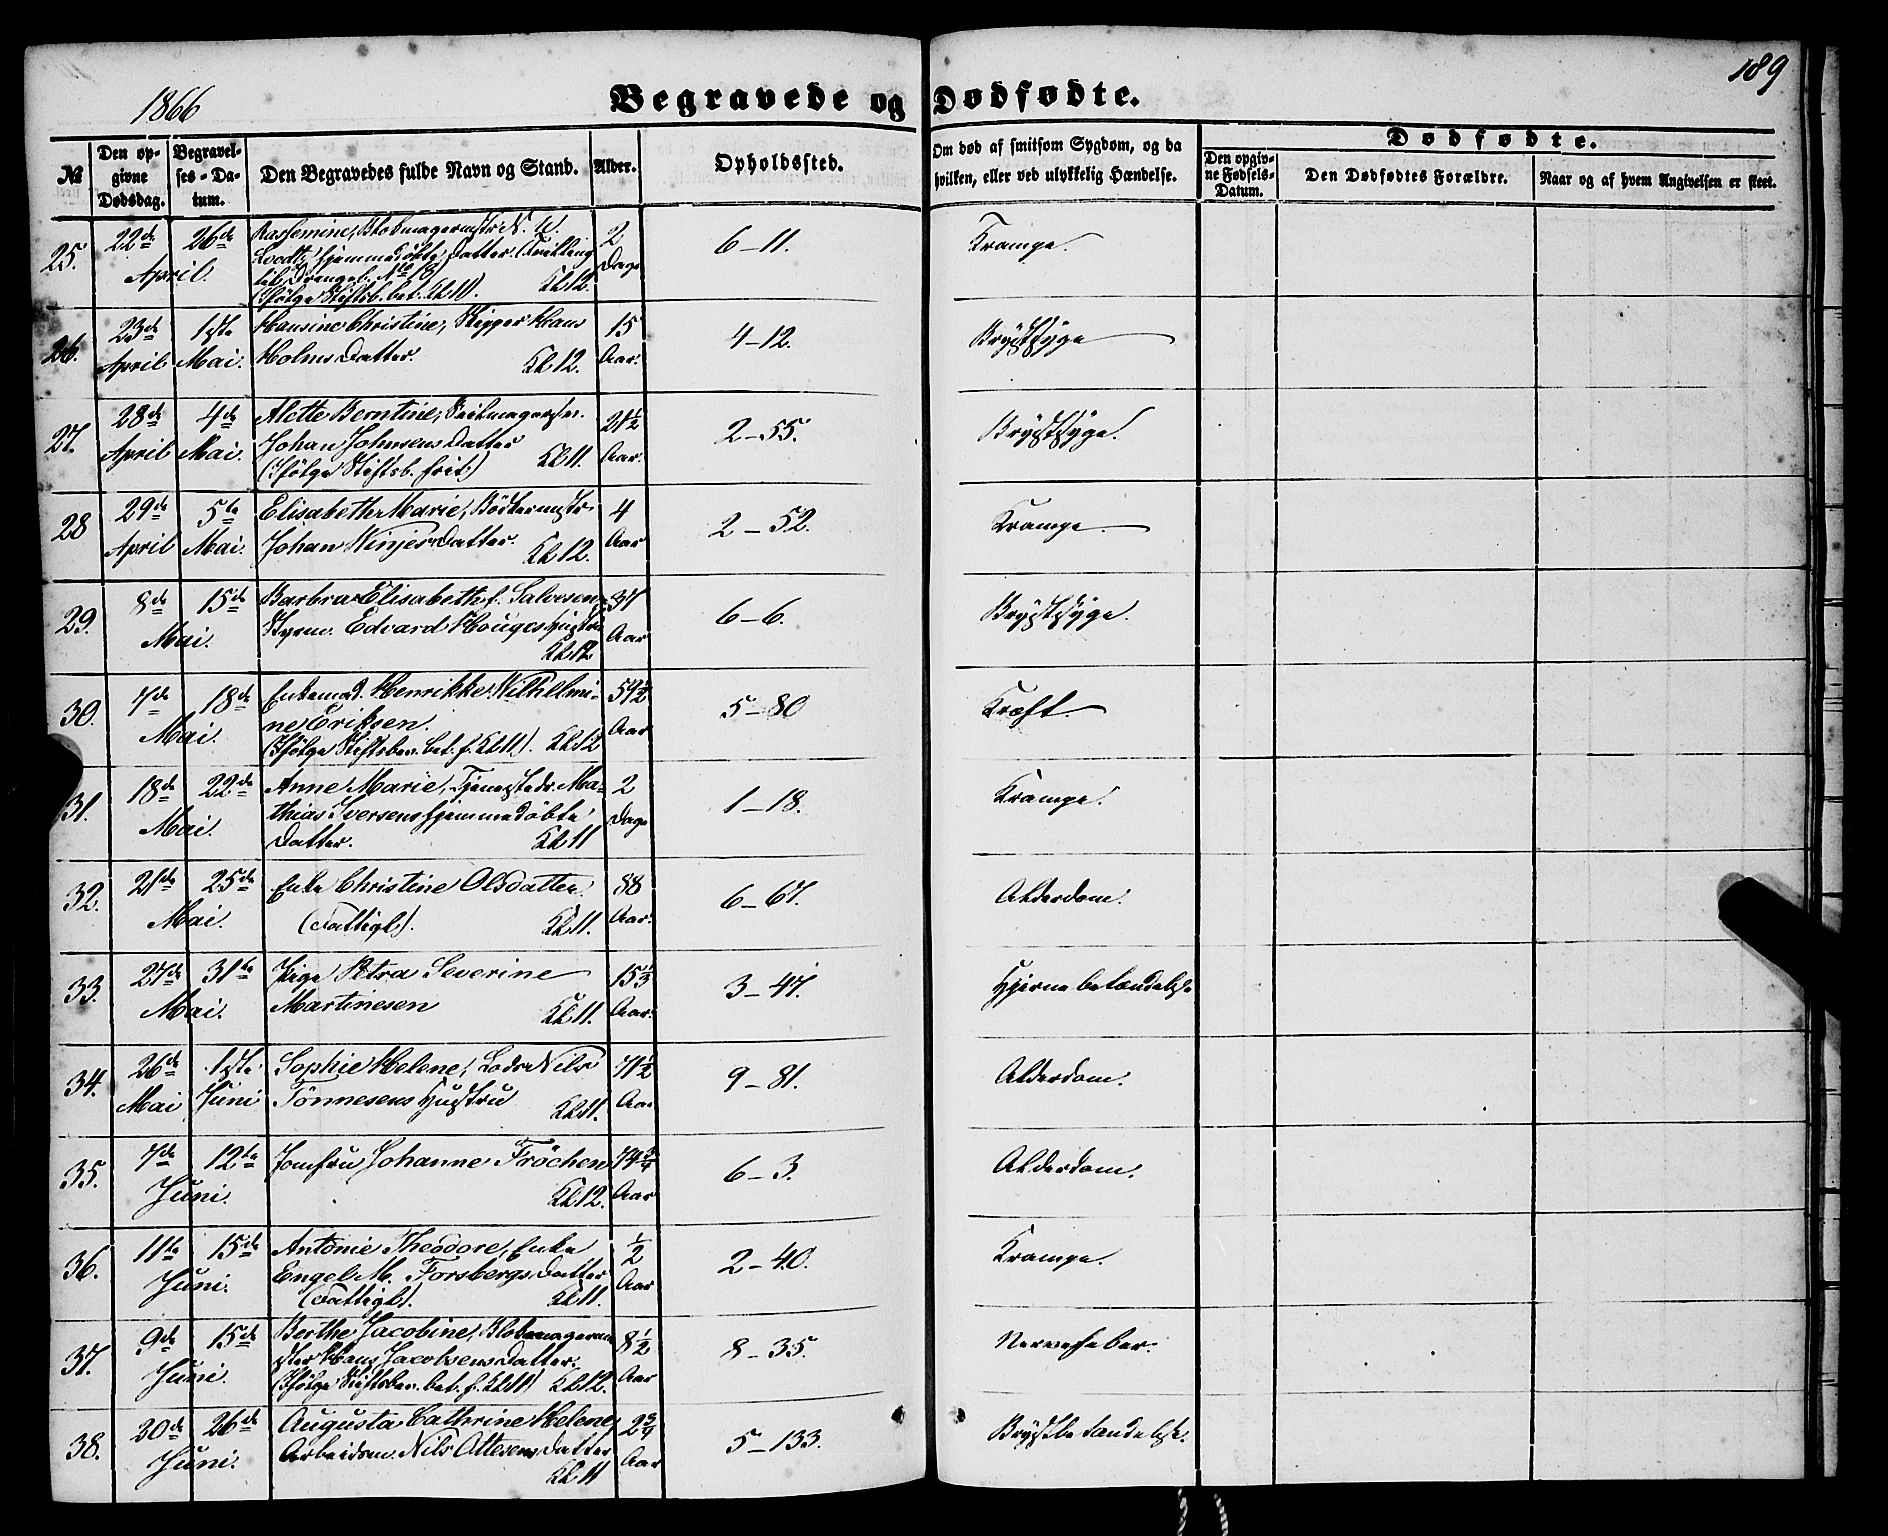 1866
Begravede og Dødfødte.
189
№
Den opgivne Dødsdag.
Begravelses-Datum.
Den Begravedes fulde Navn og Stand.
Alder.
Opholdssted.
Om død af smitsom Sygdom, og da hvilken, eller ved ulykkelig Hændelse.
Dødfødte.
Den opgivne Fødsels-Datum.
Den Dødfødtes Forældre.
Naar og af hvem Angivelsen er skeet.
25. 22de 26de April. 2 Dage 6-11. Krampe.
hjemmedøbte Datter. (Tvilling
til Drengeb. No 18)
(Ifølge Stiftsb. bet. Kl 11). Kl 12.
26. 23de April 1ste Mai. Hansine Christine, Skipper Hans 15 Aar. 4-12. Brystsyge
Holms Datter. Kl 12.
27. 28de April 4de Mai. Alette Berntine, Seilmagersv. 21½ Aar. 2-55. Brystsyge.
Johan Johnsens Datter
(Ifølge Stiftsb. frit.) Kl 11.
28 29de April 5te Mai. Elisabeth Marie, Bødkermstr 4 Aar 2-52. Krampe
Johan Winjes Datter. Kl 12.
29. 8de 15de Mai. Barbra Elisabeth f. Salvesen, 34 Aar 6-6. Brystsyge.
Styrm. Edvard Houges Hustru
Kl 12
30. 7de 18de Mai. Enkemad. Henrikke Wilhelmi- 59½ Aar 5-80 Kræft.
ne Eriksen.
(Ifølge Stiftsbev. bet. f. Kl 11). Kl 12
31. 18de 22de Mai. Anne Marie, Tjenestedr. Ma- 2 Dage 1-18. Krampe.
thias Iversens hjemmedøbte
Datter. Kl 11
32. 21de 25de Mai. Enke Christine Olsdatter. 88 Aar. 6-67. Alderdom.
(Fattigl.). Kl 11.
33. 27de 31te Mai. Pige Petra Severine 15⅓ Aar. 3-47. Hjernebetændelse
Martinesen Kl 11.
34. 26de Mai 1ste Juni Sophie Helene, Lods Nils 71½ Aar 9-81. Alderdom.
Tønnesens Hustru Kl 11.
35. 7de 12te Juni. Jomfru Johanne Frøchen 74¾ Aar 6-3. Alderdom.
Kl 12.
36. 11te 15de Juni. Antonie Theodore, Enke ½ Aar 2-40. Krampe.
Engel M. Forsbergs Datter
(Fattigl.). Kl 11.
37. 9de 15de Juni. Berthe Jacobine, Blokmagerm- 8½ Aar 8-35. Nervefeber.
ster Hans Jacobsens Datter.
(Ifølge Stiftsbev. bet. f. Kl 11) Kl 12.
38. 20de 26de Juni. Augusta Cathrine Helene, 2¾ Aar 5-133. Brystbetændelse.
Arbeidsm. Nils Attesens Datter
Kl 11